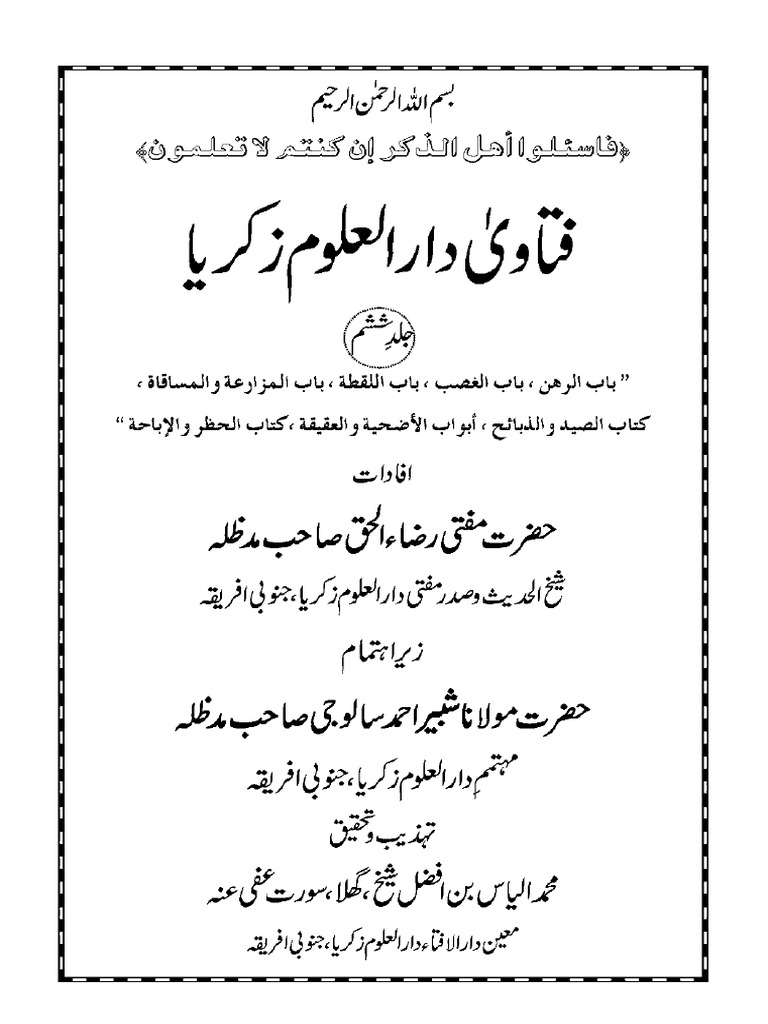 بسم اللہ الرحمٰن الرحیم
﴿فاسئلوا أهل الذكر إن كنتم لا تعلمون﴾
فتاویٰ دارالعلوم زکریا
جلدِ ششم
” باب الرهن ، باب الغصب ، باب اللقطة ، باب المزارعة والمساقاة ،
كتاب الصيد والذبائح ، أبواب الأضحية والعقيقة ،كتاب الحظر والإباحة “
افادات
حضرت مفتی رضاء الحق صاحب مدظلہ
شیخ الحدیث وصدر مفتی دارالعلوم زکریا، جنوبی افریقہ
زیرِ اہتمام
حضرت مولانا شبیر احمد سالوجی صاحب مدظلہ
مہتممِ دارالعلوم زکریا، جنوبی افریقہ
تہذیب وتحقیق
محمد الیاس بن افضل شیخ، گھلا، سورت عفی عنہ
معین دارالافتاء دارالعلوم زکریا، جنوبی افریقہ